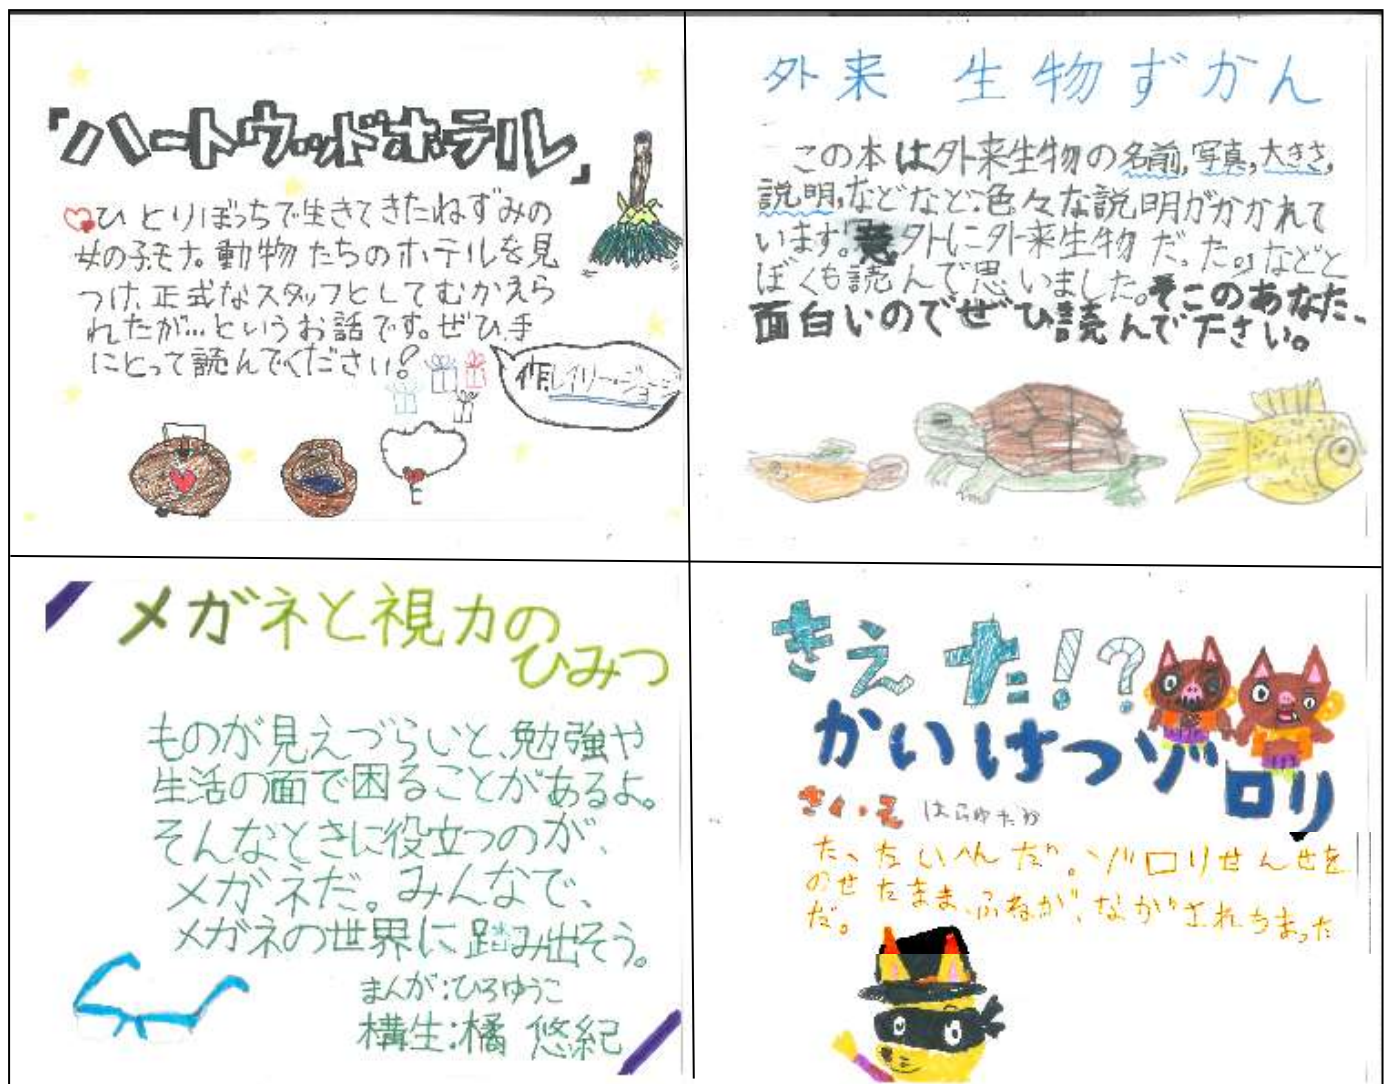 「ハートウッドホテル」
ひとりぼっちで生きてきたねずみの
女の子モナ。動物たちのホテルを見
つけ、正式なスタッフとしてむかえら
れたが…というお話です。ぜひ、手
にとって読んでください！
作
外来 生物ずかん
この本は外来生物の名前,写真,大きさ,
説明,などなど、色々な説明がかかれて
います。「意外に外来生物だった。」などと
ぼくも読んで思いました。そこのあなた、
面白いのでぜひ読んで下さい。
メガネと視力の
ひみつ
ものが見えづらいと、勉強や
生活の面で困ることがあるよ。
そんなときに役立つのが、
メガネだ。みんなで、
メガネの世界に踏み出そう。
まんが:ひろゆうこ
構生:橘 悠紀
きえた!?
かいけつゾ
ロリ
さく・え はらゆたか
た、たいへんだ。ゾロリせんせを
のせたまま、ふねが、ながされちまった
だ。